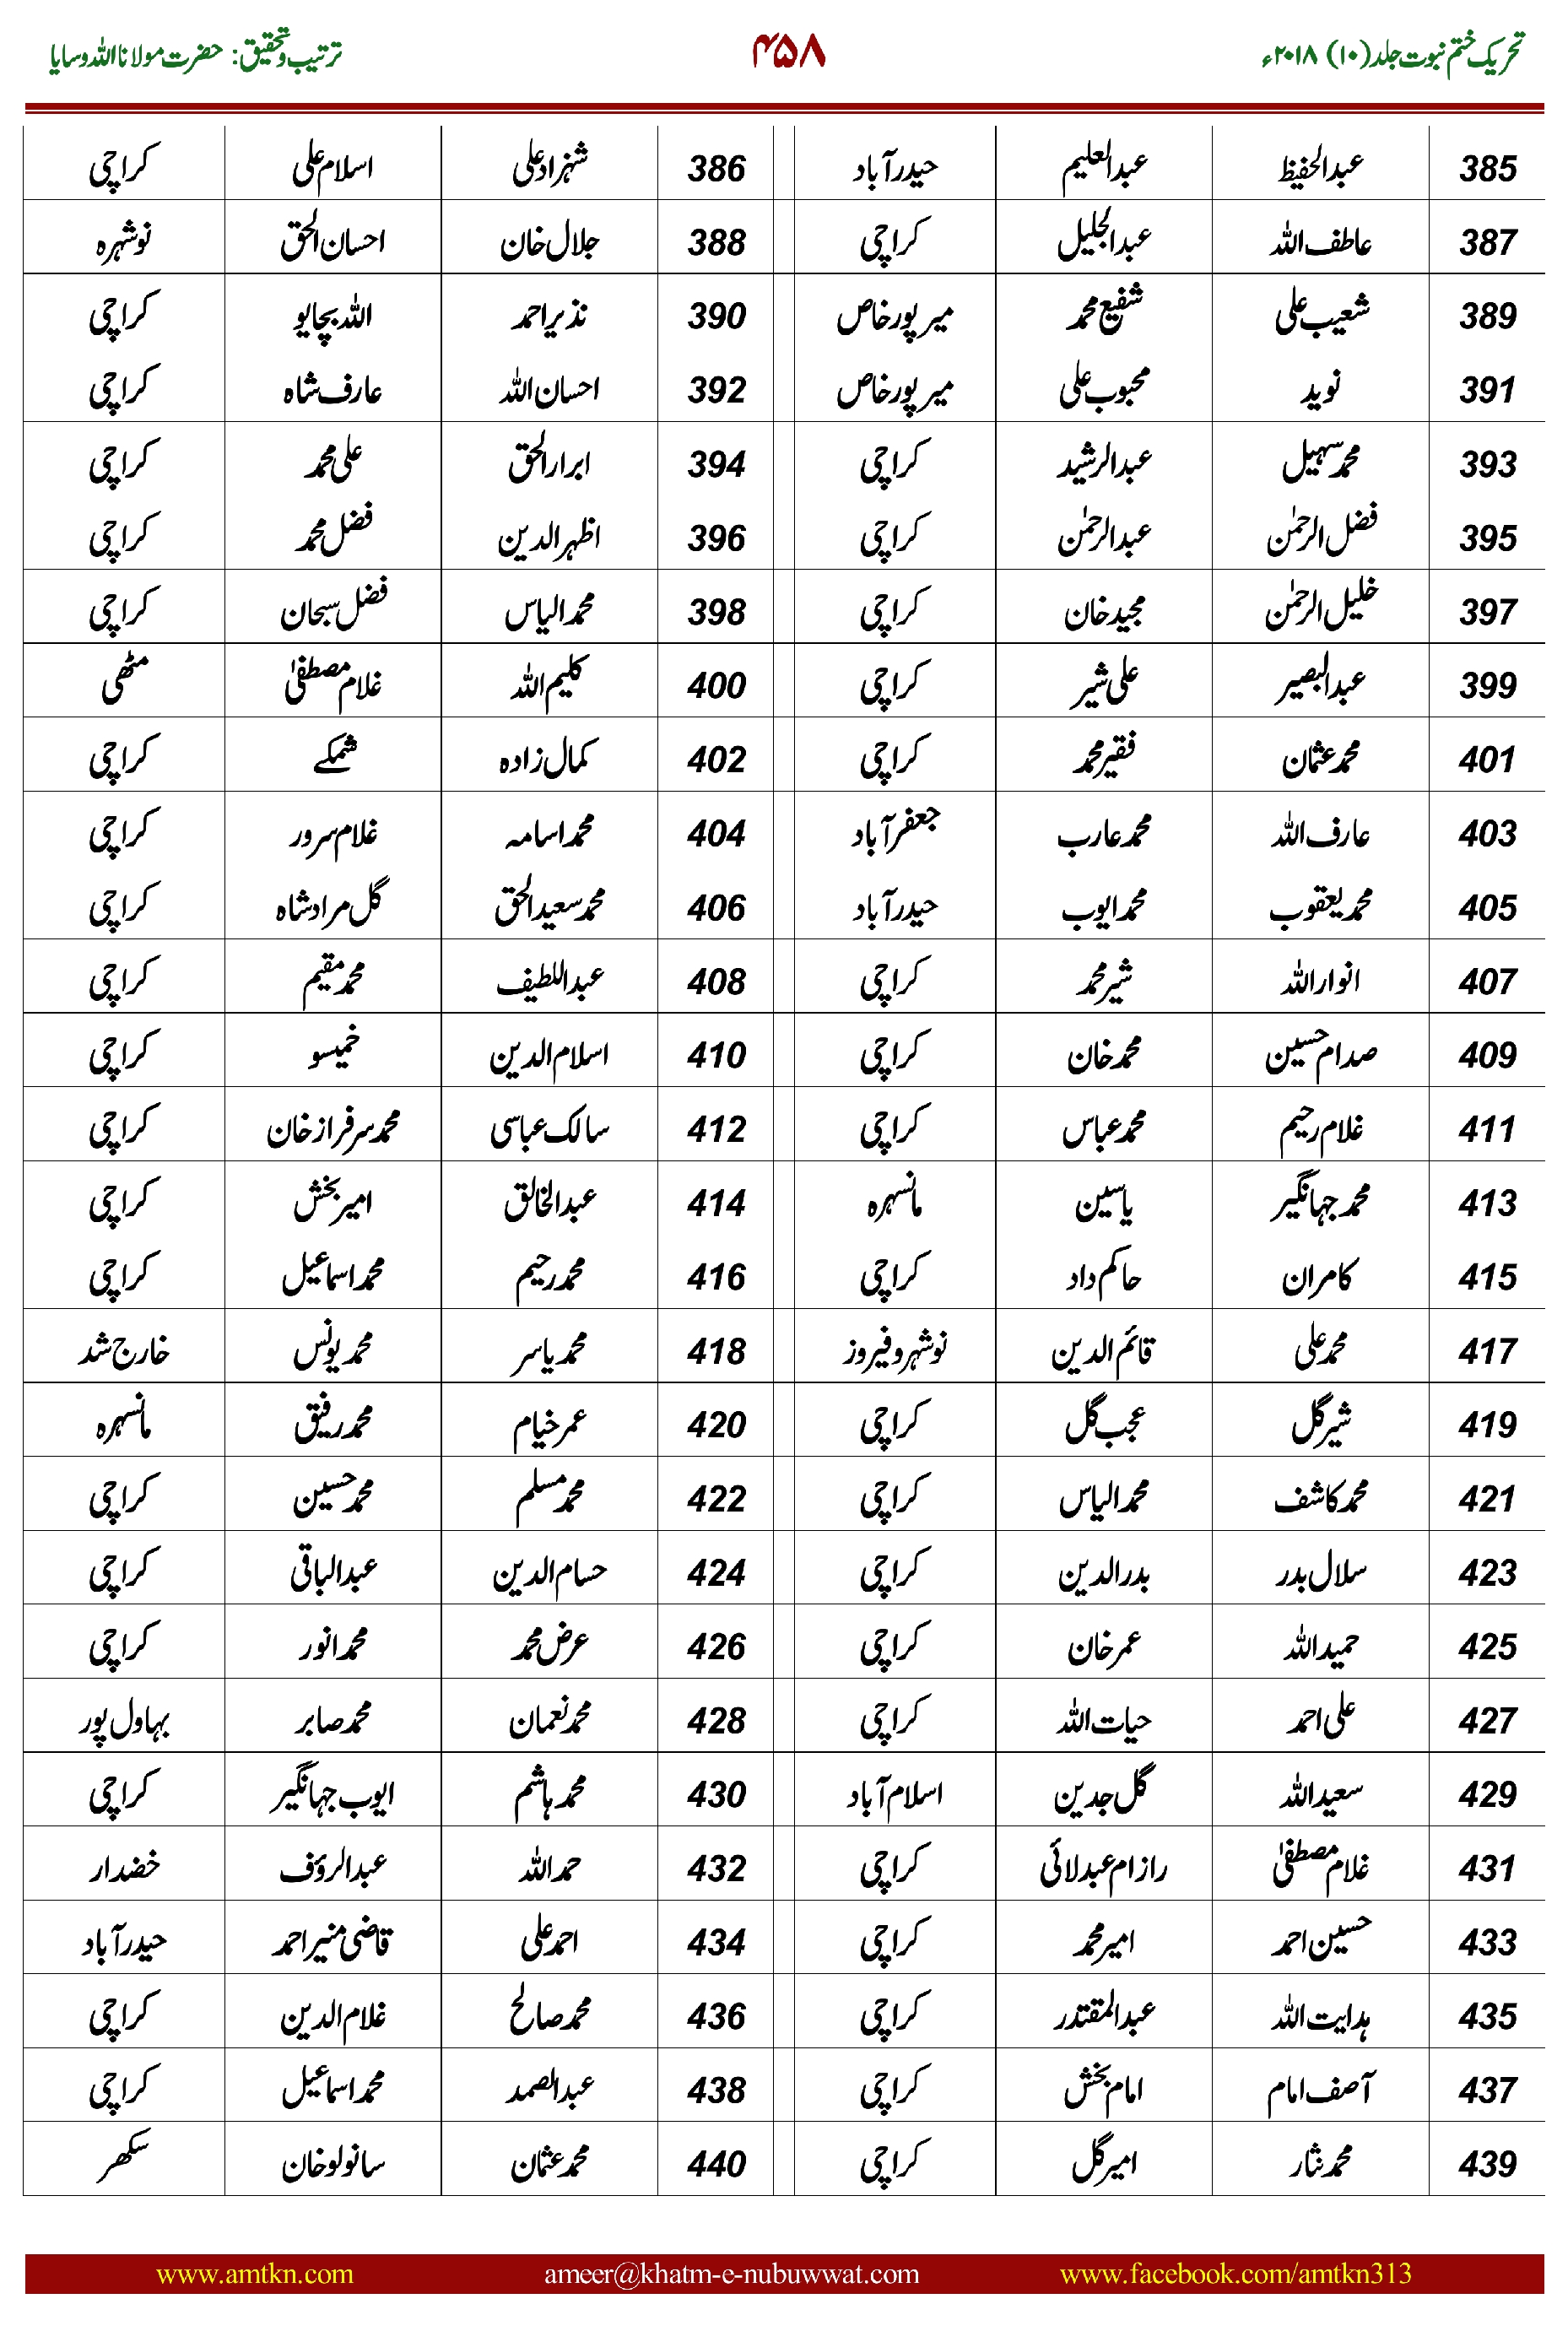 تحریک ختم نبوت جلد (۱۰) ۲۰۱۸ء ۴۵۸ ترتیب و تحقیق: حضرت مولانا اللہ وسایا
385 عبدالحفیظ عبدالعلیم حیدرآباد 386 شہزاد علی اسلام علی کراچی
387 عاطف اللہ عبدالجلیل کراچی 388 جلال خان احسان الحق نوشہرہ
389 شعیب علی شفیع محمد میرپورخاص 390 نذیر احمد اللہ بچایو کراچی
391 نوید محبوب علی میرپورخاص 392 احسان اللہ عارف شاہ کراچی
393 محمد سہیل عبدالرشید کراچی 394 ابرارالحق علی محمد کراچی
395 فضل الرحمٰن عبدالرحمٰن کراچی 396 اظہرالدین فضل محمد کراچی
397 خلیل الرحمٰن مجید خان کراچی 398 محمد الیاس فضل سبحان کراچی
399 عبدالبصیر علی شیر کراچی 400 کلیم اللہ غلام مصطفیٰ مٹھی
401 محمد عثمان فقیر محمد کراچی 402 کمال زادہ شمکے کراچی
403 عارف اللہ محمد عارب جعفرآباد 404 محمد اسامہ غلام سرور کراچی
405 محمد یعقوب محمد ایوب حیدرآباد 406 محمد سعید الحق گل مراد شاہ کراچی
407 انوار اللہ شیر محمد کراچی 408 عبداللطیف محمد مقیم کراچی
409 صدام حسین محمد خان کراچی 410 اسلام الدین خمیسو کراچی
411 غلام رحیم محمد عباس کراچی 412 سالک عباسی محمد سرفراز خان کراچی
413 محمد جہانگیر یاسین مانسہرہ 414 عبدالخالق امیر بخش کراچی
415 کامران حاکم داد کراچی 416 محمد رحیم محمد اسماعیل کراچی
417 محمد علی قائم الدین نوشہروفیروز 418 محمد یاسر محمد یونس خارج شد
419 شیر گل عجب گل کراچی 420 عمر خیام محمد رفیق مانسہرہ
421 محمد کاشف محمد الیاس کراچی 422 محمد مسلم محمد حسین کراچی
423 سلال بدر بدرالدین کراچی 424 حسام الدین عبدالباقی کراچی
425 حمید اللہ عمر خان کراچی 426 عرض محمد محمد انور کراچی
427 علی احمد حیات اللہ کراچی 428 محمد نعمان محمد صابر بہاول پور
429 سعید اللہ گل جدین اسلام آباد 430 محمد ہاشم ایوب جہانگیر کراچی
431 غلام مصطفیٰ رازام عبدلائی کراچی 432 حمد اللہ عبدالرؤف خضدار
433 حسین احمد امیر محمد کراچی 434 احمد علی قاضی منیر احمد حیدرآباد
435 ہدایت اللہ عبدالمقتدر کراچی 436 محمد صالح غلام الدین کراچی
437 آصف امام امام بخش کراچی 438 عبدالصمد محمد اسماعیل کراچی
439 محمد نثار امیر گل کراچی 440 محمد عثمان سانولو خان سکھر
www.amtkn.com ameer@khatm-e-nubuwwat.com www.facebook.com/amtkn313